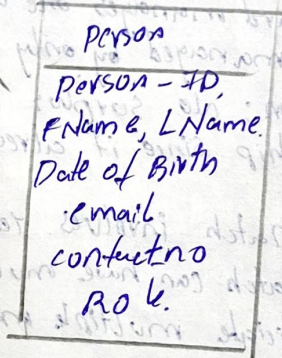 Person
Person - ID,
FName, LName.
Date of Birth
email
contactno
Role.